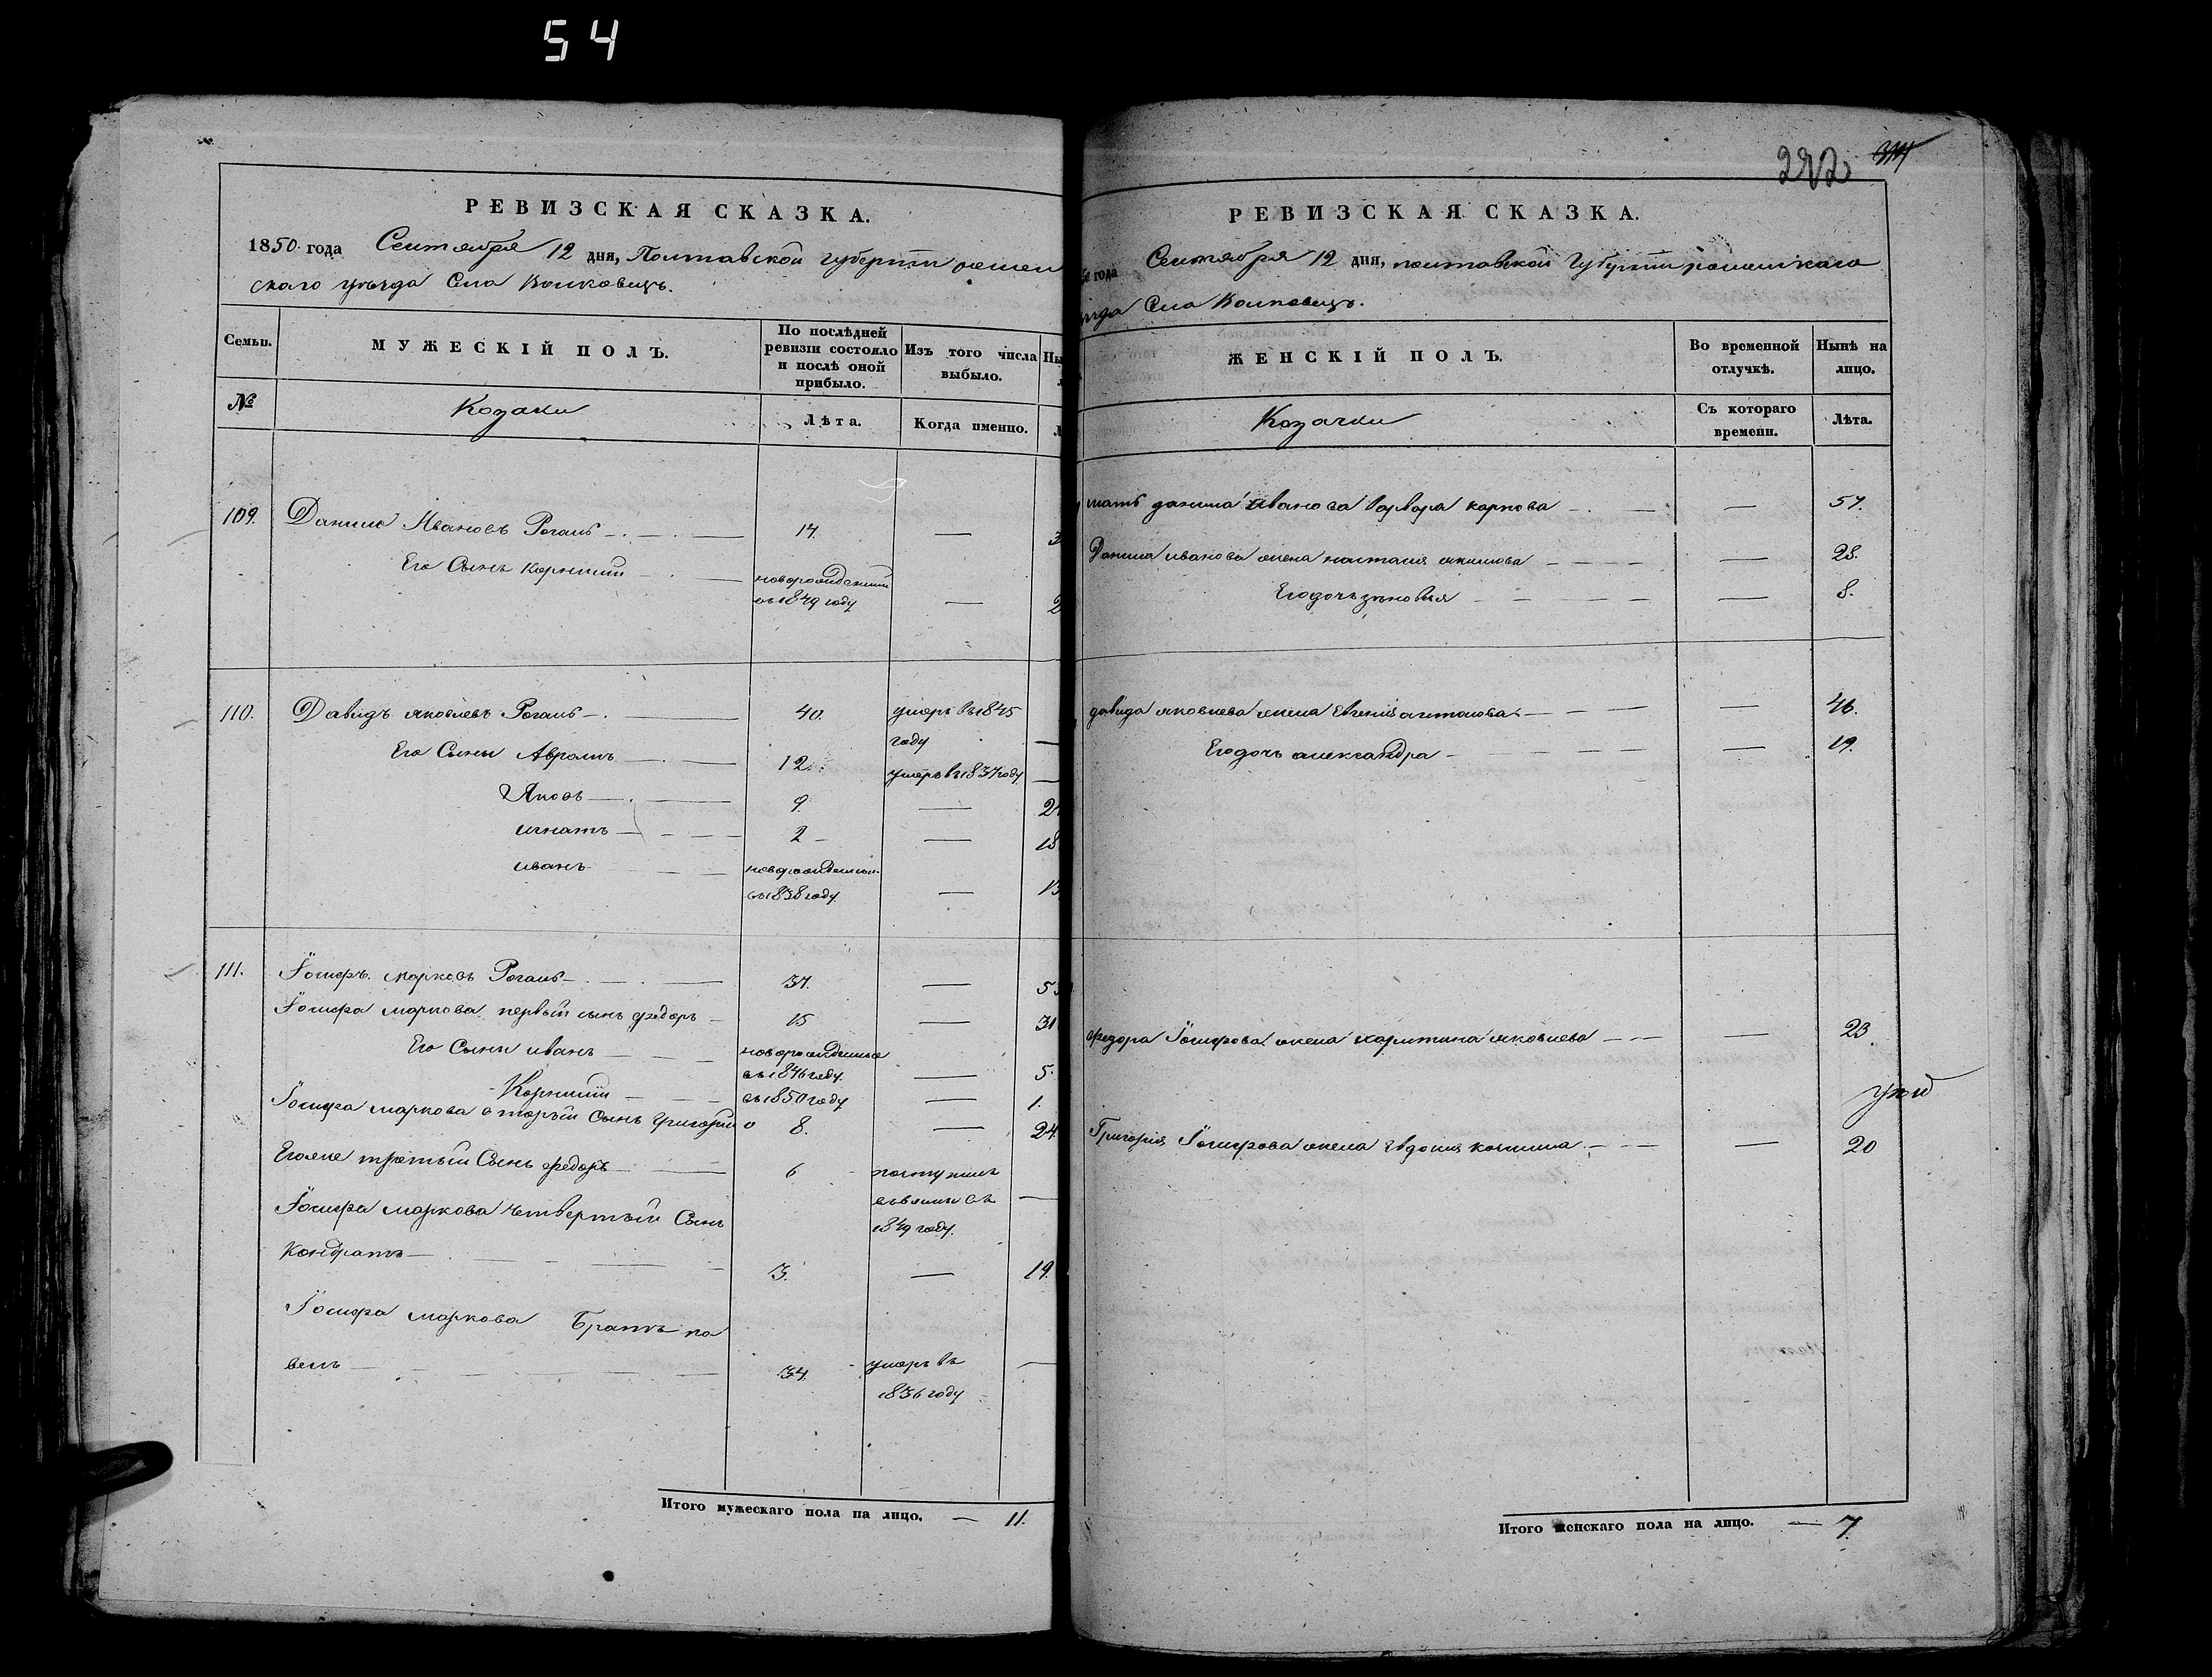 54
РЕВИЗСКАЯ СКАЗКА.
1850 года Сентября 12 дня, Полтавской губернии ромен
скаго уезда Села Волковецъ.
Семьи.
МУЖЕСКІЙ ПОЛЪ.
По послѣдней ревизіи состояло и послѣ оной прибыло.
Изъ того числа выбыло.
№
Козаки
Лѣта.
Когда именно.
109. Данило Ивановъ Рогаль 14. —
Его Сынъ Корнилий новорожденный
въ 1849 году — 2
110. Давидъ яковлевъ Рогаль 40. умеръ въ 1845
году —
Его Сыны Аврамъ 12. умеръ в 1837 году —
Яковъ 9 —
игнатъ 2 — 18
иванъ новорожденный
въ 1838 году — 13
111. Іосифъ марковъ Рогаль 37. — 53
Іосифа маркова первый сынъ федоръ 15 — 31
Его Сыны иванъ новорожденные
въ 1846 году — 5.
Корнилий въ 1850 году — 1.
Іосифа маркова вторый Сынъ григорий 8. — 24
Егоже третьий Сынъ федоръ 6 поступилъ
1849 году. —
Іосифа маркова четвертый Сынъ
Кондратъ 3. — 19.
Іосифа маркова Братъ па
велъ 34. умеръ въ —
1836 году
Итого мужескаго пола на лицо. — 11.
282 314
РЕВИЗСКАЯ СКАЗКА.
года Сентября 12 дня, полтавской Губернии роменскаго
уезда Села Волковецъ.
ЖЕНСКІЙ ПОЛЪ.
Во временной отлучкѣ.
Нынѣ на лицо.
Козачки
Съ котораго времени.
Лѣта.
мать данила иванова варвара карпова — 57.
Данила иванова жена настасия якимова — 28.
Его дочь зѣновия — 8.
давида яковлева жена Евгения антонова — 46.
Его дочь александра — 19.
федора Іосифова жена харитина яковлева — 23.
Григория Іосифова жена Евдокия — 20
Итого женскаго пола на лицо. — 7.